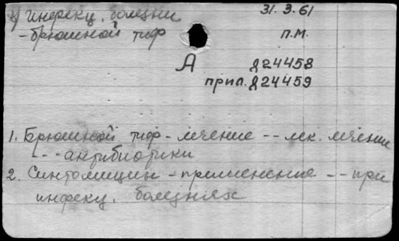 1) инфекц. болезни 31.3.61
- брюшной тиф п.м.
А Д24458
прил. Д24459
1. Брюшной тиф - лечение -- лек. лечение
[-- антибиотики
2. Синтомицин - применение -- при
инфекц. болезнях